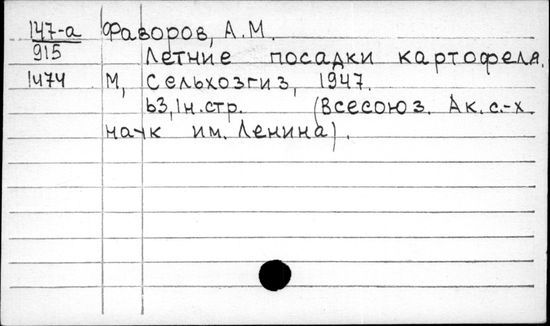 147-а Фаворов, А.М.
915 Летние посадки картофеля.
1474 М, Сельхозгиз, 1947.
63,1н.стр. (Всесоюз. Ак. с.-х.
наук им. Ленина).